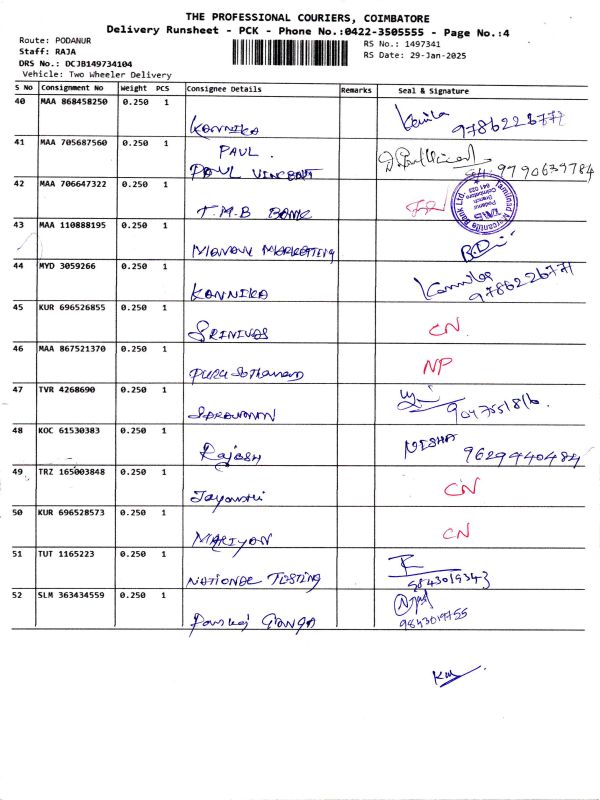 THE PROFESSIONAL COURIERS, COIMBATORE
Delivery Runsheet - PCK - Phone No.:0422-3505555 - Page No.:4
Route: PODANUR RS No.: 1497341
Staff: RAJA RS Date: 29-Jan-2025
DRS No.: DCJB149734104
Vehicle: Two Wheeler Delivery
S No Consignment No Weight PCS Consignee Details Remarks Seal & Signature
40 MAA 868458250 0.250 1
KANNIKA 9786226777
41 MAA 705687560 0.250 1
PAUL.
PAUL VINCENT 9790639784
42 MAA 706647322 0.250 1
T.M.B BANK Tamilnad Mercantile Bank Ltd. Podanur Branch Coimbatore 641 023
43 MAA 110888195 0.250 1
MARKETTING
44 MYD 3059266 0.250 1
KANNIKA 9786226777
45 KUR 696526855 0.250 1
SRINIVAS CN
46 MAA 867521370 0.250 1
NP
47 TVR 4268690 0.250 1
SARAVANAN
48 KOC 61530383 0.250 1
Rajesh NISHA 9629940484
49 TRZ 165003848 0.250 1
Jayanthi CN
50 KUR 696528573 0.250 1
MARIYAN CN
51 TUT 1165223 0.250 1
NATIONAL TESTING 9843019343
52 SLM 363434559 0.250 1
9843019755